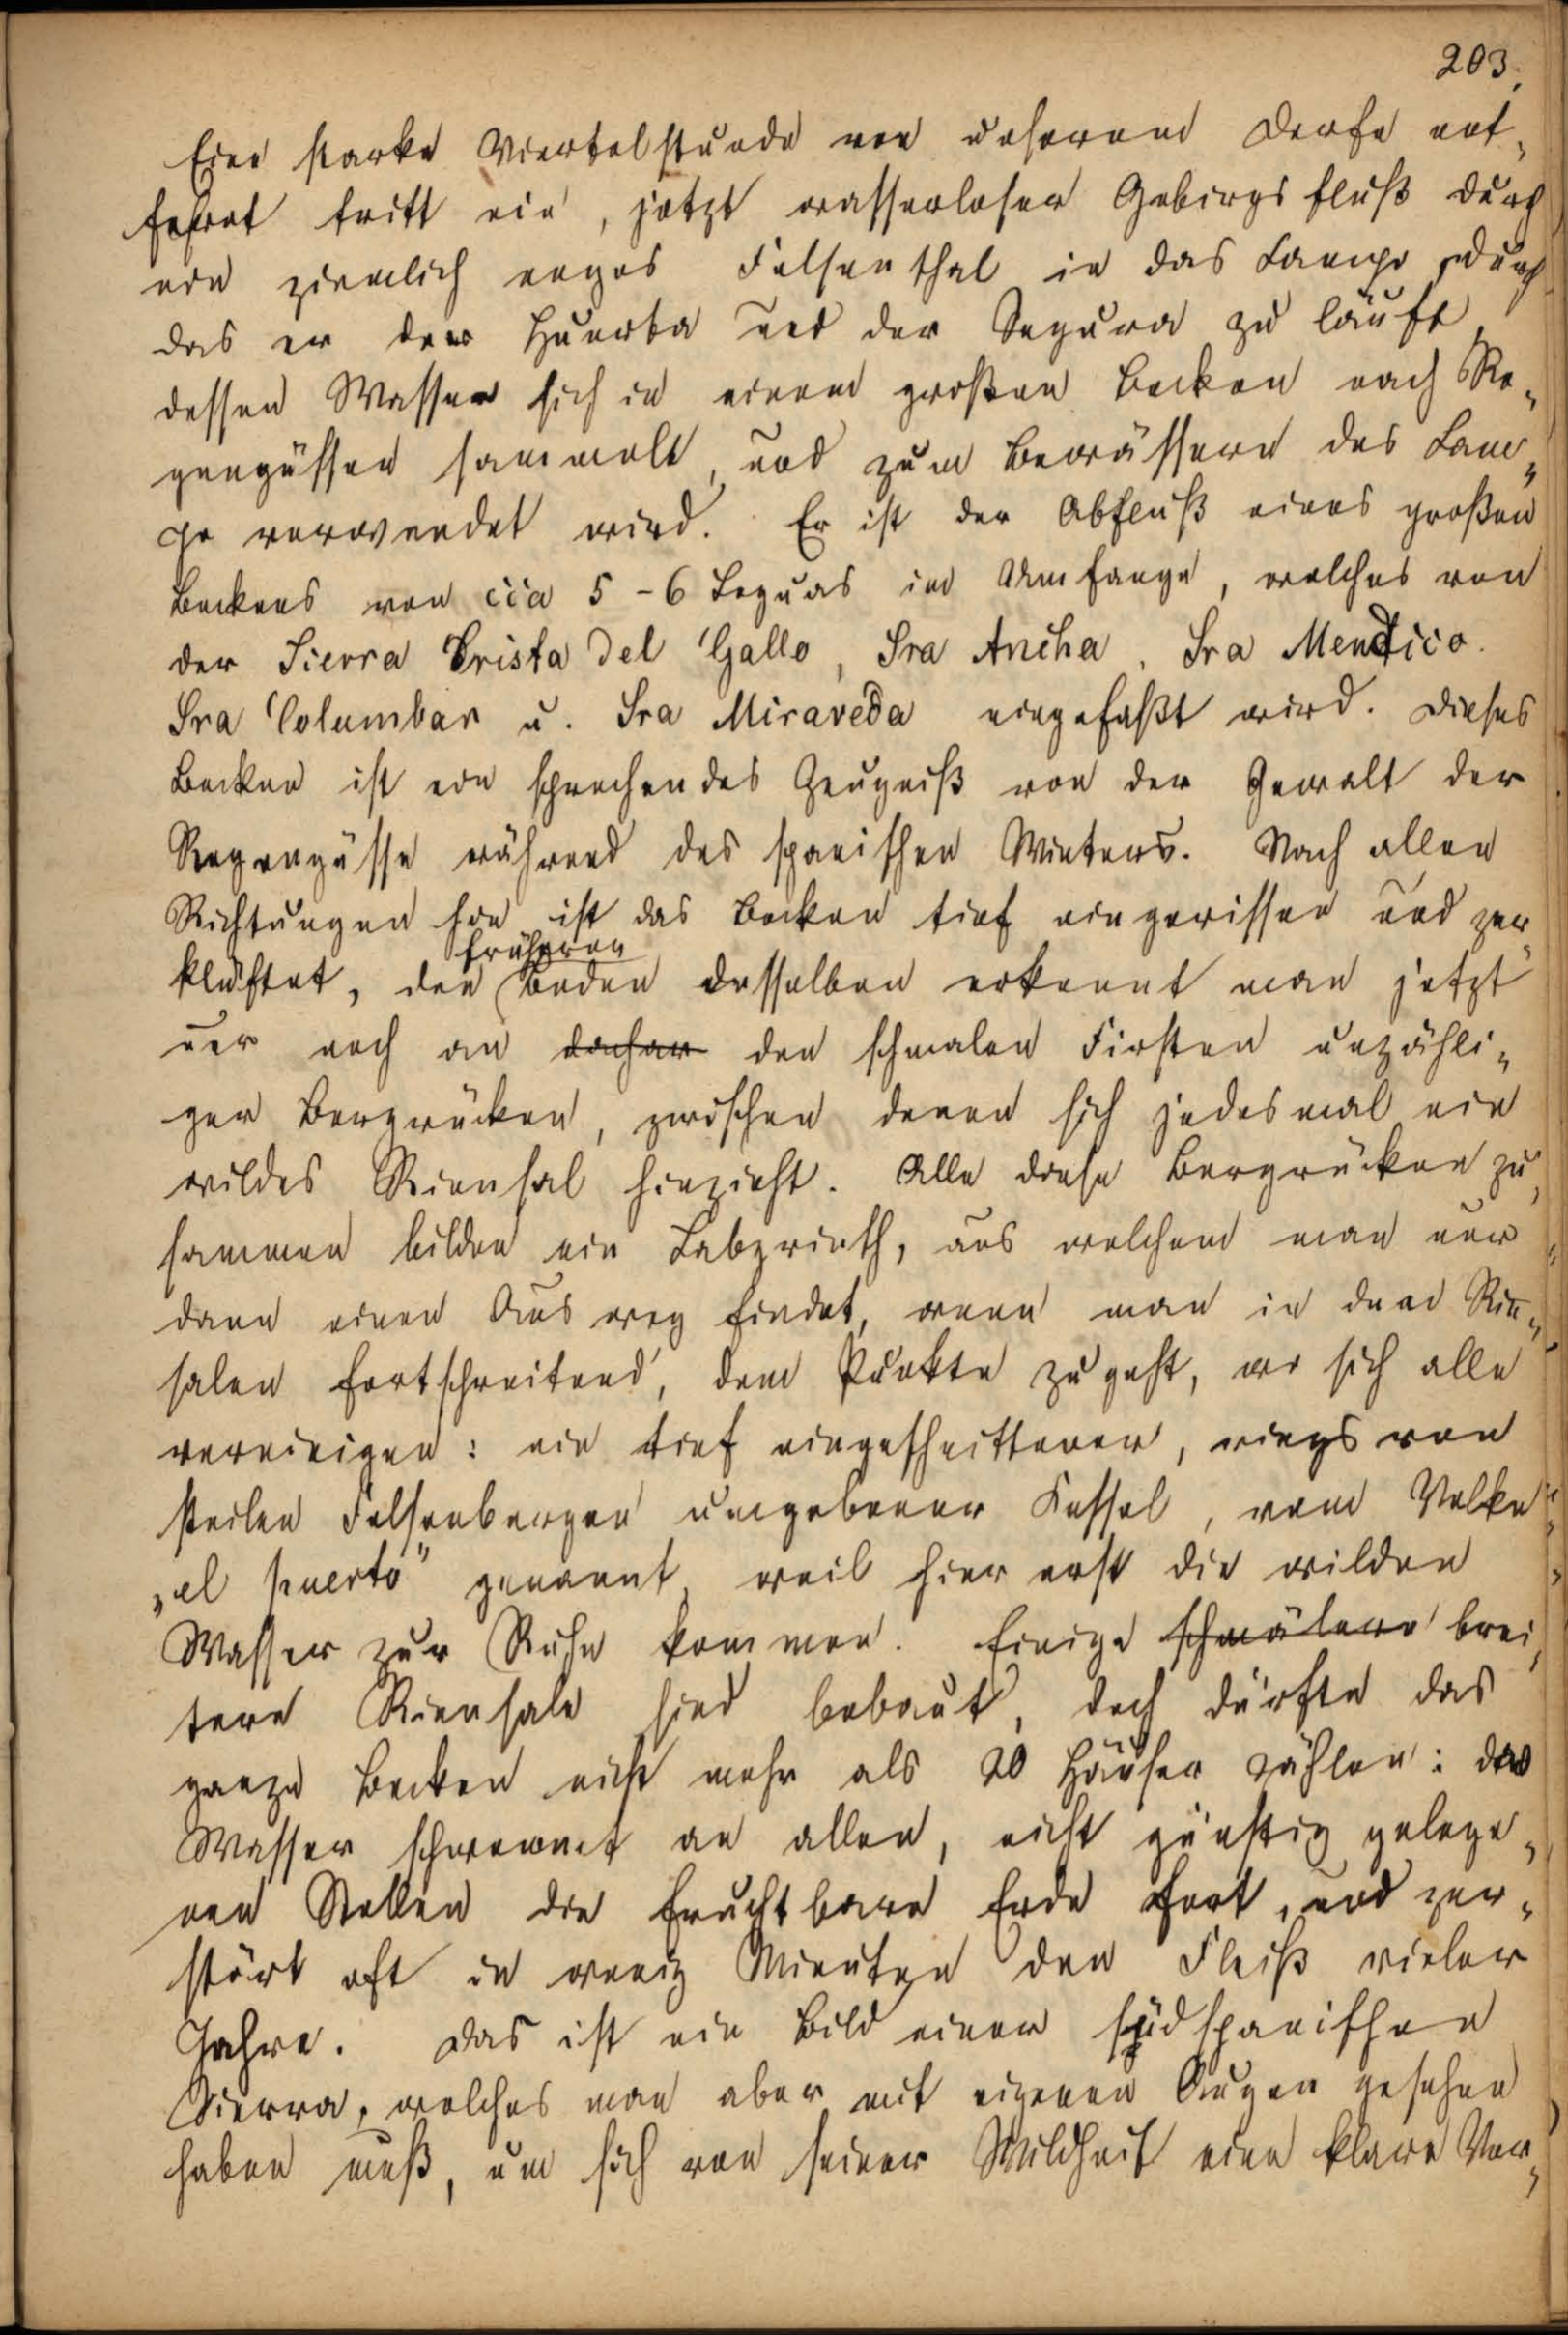 203.
Eine starke Viertelstunde von unserem Dorfe ent-
fernt tritt ein, jetzt wasserloser Gebirgsfluß durch
ein ziemlich enges Felsenthal in das Campo, durch
das er der Huerta und der Segura zu läuft,
dessen Wasser sich in einem großen Becken nach Re-
gengüssen sammelt, und zum Bewässern des Cam-
po verwendet wird. Er ist der Abfluß eines großen
Beckens von cca 5-6 Leguas im Umfange, welches von
der Sierra Crista del Gallo, Sra Ancha, Sra Mendico.
Sra Columbar u. Sra Miraveda eingefaßt wird. Dieses
Becken ist ein sprechendes Zeugniß von der Gewalt der
Regengüsse während des spanischen Winters. Nach allen
Richtungen hin ist das Becken tief eingerissen und zer-
klüftet, den früheren Boden desselben erkennt man jetzt
nur noch an daher den schmalen Firsten unzähli-
ger Bergrücken, zwischen denen sich jedesmal ein
wildes Rinnsal hinzieht. Alle diese Bergrücken zu-
sammen bilden ein Labyrinth, aus welchem man nur
dann einen Ausweg findet, wenn man in den Rin-
salen fortschreitend, dem Punkte zugeht, wo sich alle
vereinigen: ein tief eingeschnittener, rings von
steilen Felsenbergen umgebener Kessel, vom Volke
„el puerto" genannt, weil hier erst die wilden
Wasser zur Ruhe kommen. Einige schmälere brei-
tere Rinnsale sind bebaut, doch dürfte das
ganze Becken nicht mehr als 20 Häuser zählen: das
Wasser schwemmt an allen, nicht günstig gelege-
nen Stellen die fruchtbare Erde fort, und zer-
stört oft in wenig Minuten den Fleiß vieler
Jahre. Das ist ein Bild einer südspanischen
Sierra, welches man aber mit eigenen Augen gesehen
haben muß, um sich von seiner Wildheit eine klare Vor-